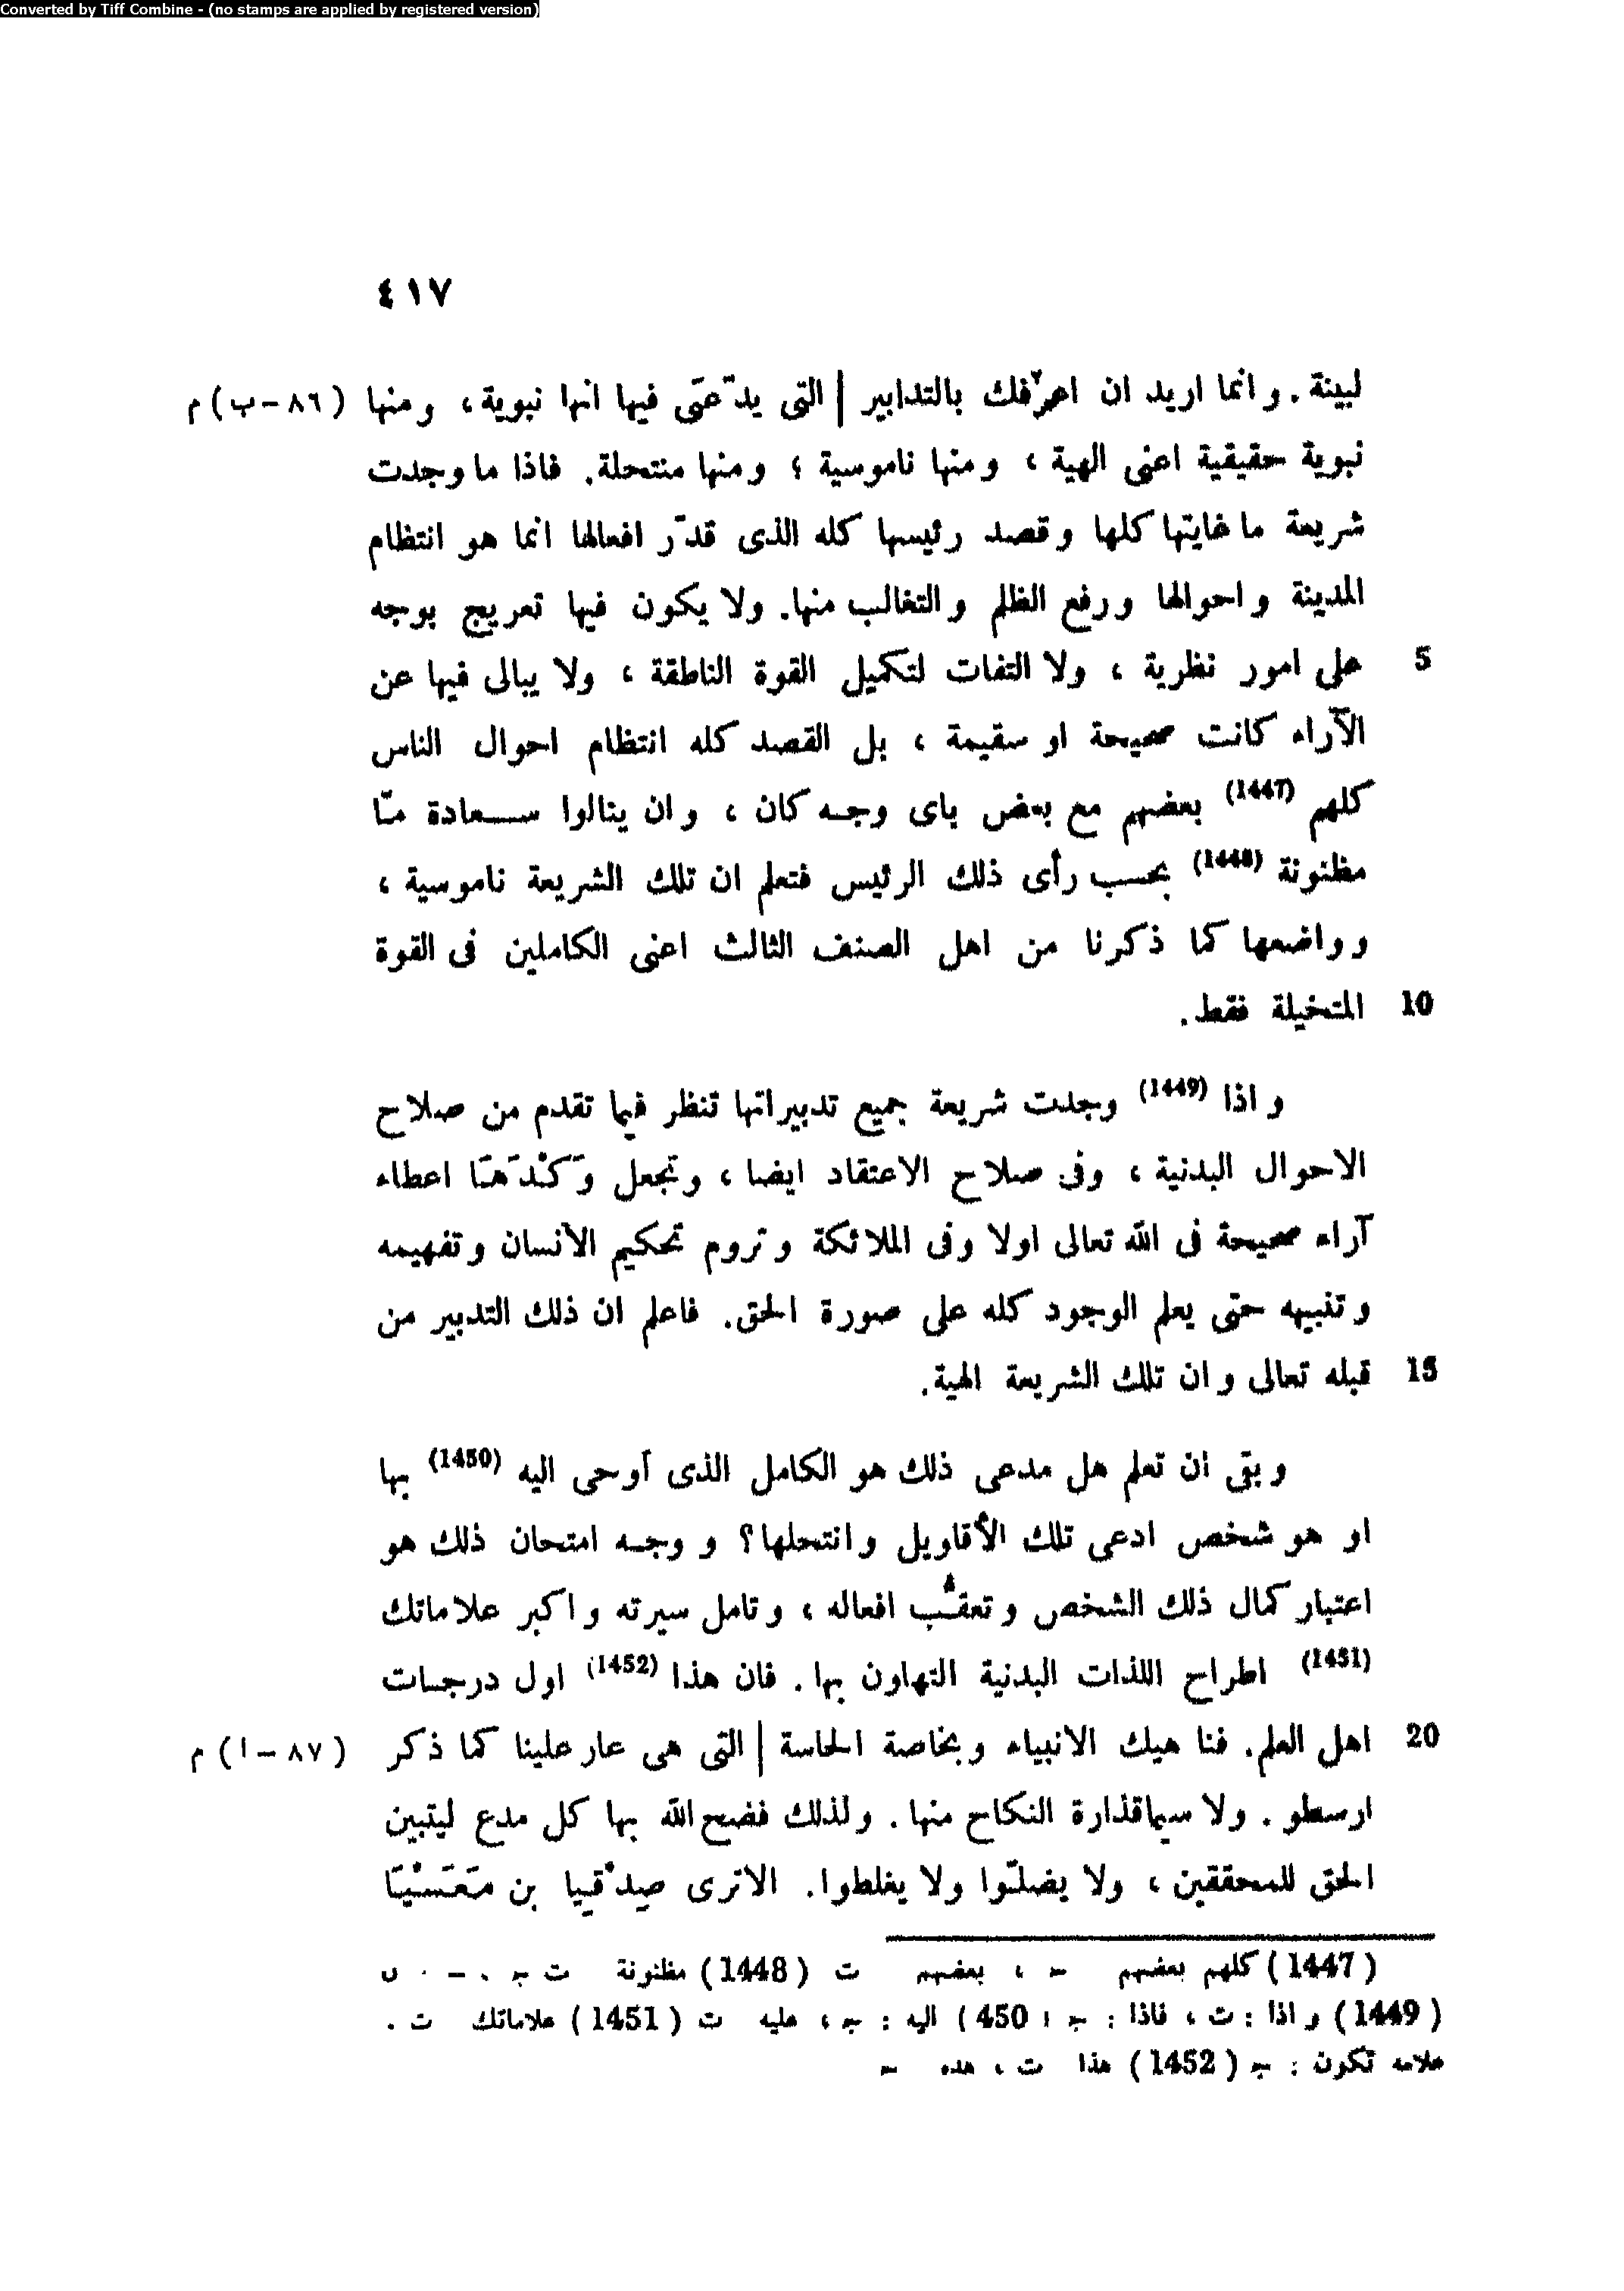 Converted by Tiff Combine - (no stamps are applied by registered version)
٤١٧
لبينة . وانما اريد ان اعرّفك بالتدابير | التى يدّعَى فيها انها نبوية، ومنها (٨٦-ب) م
نبوية حقيقية اعنى الهية ، ومنها ناموسية ؛ ومنها منتحلة. فاذا ما وجدت
شريعة ما غايتها كلها وقصد رئيسها كله الذى قدّر افعالها انما هو انتظام
المدينة واحوالها ورفع الظلم والتغالب منها. ولا يكون فيها تعريج بوجه
على امور نظرية ، ولا التفات لتكميل القوة الناطقة ، ولا يبالى فيها عن 5
الآراء كانت صحيحة او سقيمة ، بل القصد كله انتظام احوال الناس
كلهم (1447) بعضهم مع بعض باى وجه كان ، وان ينالوا سعادة مّا
مظنونة (1448) بحسب رأى ذلك الرئيس فتعلم ان تلك الشريعة ناموسية ،
وواضعها كما ذكرنا من اهل الصنف الثالث اعنى الكاملين فى القوة
المتخيلة فقط. 10
واذا (1449) وجدت شريعة جميع تدبيراتها تنظر فيما تقدم من صلاح
الاحوال البدنية ، وفى صلاح الاعتقاد ايضا ، وتجعل وَكْدَهَا اعطاء
آراء صحيحة فى الله تعالى اولا وفى الملائكة وتروم تحكيم الانسان وتفهيمه
وتنبيهه حتى يعلم الوجود كله على صورة الحق. فاعلم ان ذلك التدبير من
قبله تعالى وان تلك الشريعة الهية. 15
وبقى ان تعلم هل مدعى ذلك هو الكامل الذى أوحى اليه (1450) بها
او هو شخص ادعى تلك الأقاويل وانتحلها؟ ووجه امتحان ذلك هو
اعتبار كمال ذلك الشخص وتعقُّب افعاله ، وتامل سيرته واكبر علاماتك
(1451) اطراح اللذات البدنية التهاون بها . فان هذا (1452) اول درجات
اهل العلم. فنا هيك الانبياء وبخاصة الحاسة | التى هى عار علينا كما ذكر 20 (٨٧-ا) م
ارسطو . ولا سيما قذارة النكاح منها . ولذلك فضح الله بها كل مدع ليتبين
الحق للمحققين ، ولا يضلّوا ولا يغلطوا. الاترى صِدْقيا بن مَعَسْيَا
(1447) كلهم بعضهم ، بعضهم ت (1448) مظنونة ت ج . -
(1449) واذا : ت ، فاذا : ج 450) اليه : ج ، عليه ت (1451) علاماتك ت .
علامه تكون : ج (1452) هذا ت ، هده